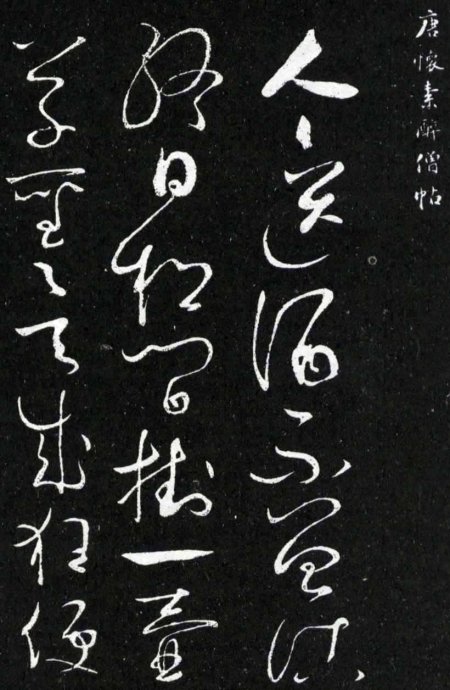 唐懷素醉僧帖
人々送酒不曾沽
終日松間掛一壺
草聖欲成狂便